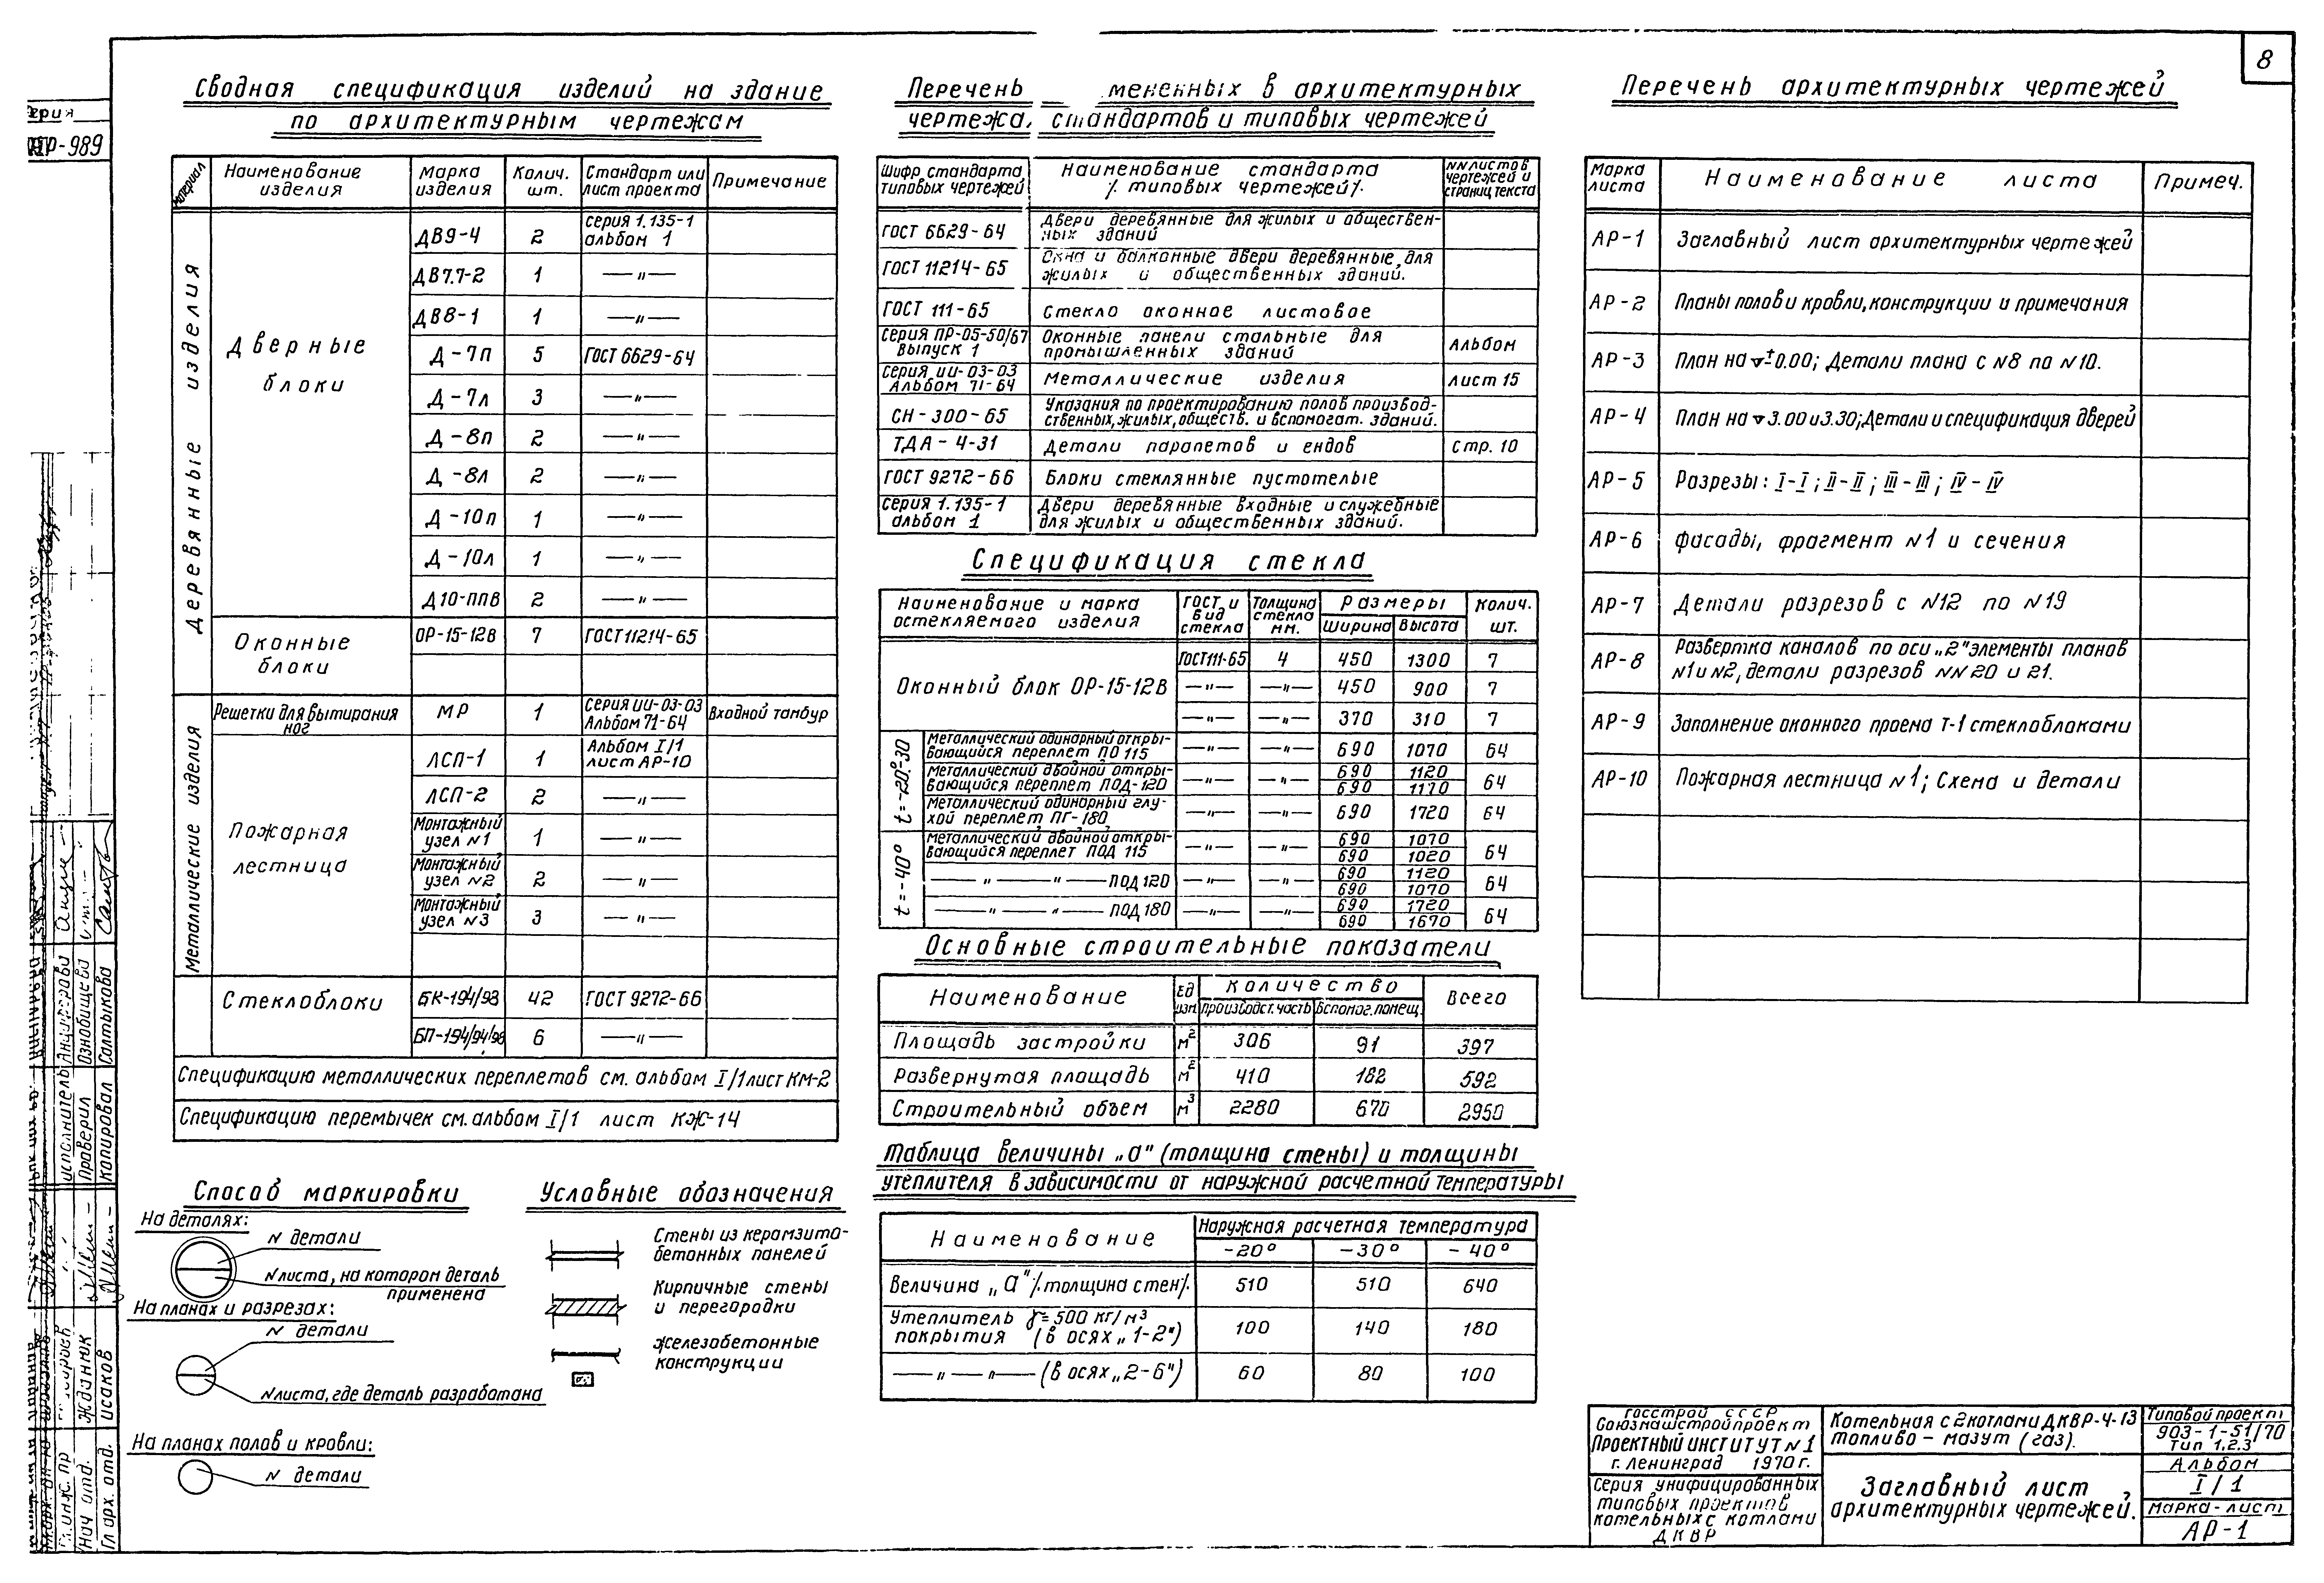 8
ерия
989
Сводная спецификация изделий на здание
по архитектурным чертежам
Материал | Наименование изделия | Марка изделия | Колич. шт. | Стандарт или лист проекта | Примечание
Деревянные изделия
Дверные блоки
ДВ9-4 | 2 | Серия 1.135-1 альбом 1
ДВ7.7-2 | 1 | —〃—
ДВ8-1 | 1 | —〃—
Д-7п | 5 | ГОСТ 6629-64
Д-7л | 3 | —〃—
Д-8п | 2 | —〃—
Д-8л | 2 | —〃—
Д-10п | 1 | —〃—
Д-10л | 1 | —〃—
Д10-ППВ | 2 | —〃—
Оконные блоки | ОР-15-12В | 7 | ГОСТ 11214-65
Металлические изделия
Решетки для вытирания ног | МР | 1 | Серия ИИ-03-03 Альбом 71-64 | Входной тамбур
Пожарная лестница
ЛСП-1 | 1 | Альбом I/1 лист АР-10
ЛСП-2 | 2 | —〃—
Монтажный узел N1 | 1 | —〃—
Монтажный узел N2 | 2 | —〃—
Монтажный узел N3 | 3 | —〃—
Стеклоблоки | БК-194/98 | 42 | ГОСТ 9272-66
БП-194/94/98 | 6 | —〃—
Спецификацию металлических переплетов см. альбом I/1 лист КМ-2
Спецификацию перемычек см. альбом I/1 лист КЖ-14
Способ маркировки
На деталях:
N детали
N листа, на котором деталь
применена
На планах и разрезах:
N детали
N листа, где деталь разработана
На планах полов и кровли:
N детали
Условные обозначения
Стены из керамзито-
бетонных панелей
Кирпичные стены
и перегородки
Железобетонные
конструкции
Перечень мененных в архитектурных
чертежа, стандартов и типовых чертежей
Шифр стандарта, типовых чертежей | Наименование стандарта /. типовых чертежей/. | NN листов чертежей и страниц текста
ГОСТ 6629-64 | Двери деревянные для жилых и обществен-ных зданий
ГОСТ 11214-65 | Окна и балконные двери деревянные, для жилых и общественных зданий.
ГОСТ 111-65 | Стекло оконное листовое
Серия ПР-05-50/67 Выпуск 1 | Оконные панели стальные для промышленных зданий | Альбом
Серия ИИ-03-03 Альбом 71-64 | Металлические изделия | лист 15
СН-300-65 | Указания по проектированию полов производ-ственных, жилых, обществ. и вспомогат. зданий.
ТДА-4-31 | Детали парапетов и ендов | стр. 10
ГОСТ 9272-66 | Блоки стеклянные пустотелые
Серия 1.135-1 альбом 1 | Двери деревянные входные и служебные для жилых и общественных зданий.
Спецификация стекла
Наименование и марка остекляемого изделия | ГОСТ и вид стекла | Толщина стекла мм. | Размеры | Ширина | Высота | Колич. шт.
Оконный блок ОР-15-12В | ГОСТ 111-65 | 4 | 450 | 1300 | 7
—〃— | —〃— | 450 | 900 | 7
—〃— | —〃— | 370 | 310 | 7
t=-20;-30°
Металлический одинарный откры-вающийся переплет ПО 115 | —〃— | —〃— | 690 | 1070 | 64
Металлический двойной откры-вающийся переплет ПОД-120 | —〃— | —〃— | 690 690 | 1120 1170 | 64
Металлический одинарный глу-хой переплет ПГ-180 | —〃— | —〃— | 690 | 1720 | 64
t=-40°
Металлический двойной откры-вающийся переплет ПОД 115 | —〃— | —〃— | 690 690 | 1070 1020 | 64
—〃—〃— ПОД 120 | —〃— | —〃— | 690 690 | 1120 1070 | 64
—〃—〃— ПОД 180 | —〃— | —〃— | 690 690 | 1720 1670 | 64
Основные строительные показатели
Наименование | Ед изм. | Количество | Производст. часть | Вспомог. помещ. | Всего
Площадь застройки | м² | 306 | 91 | 397
Развернутая площадь | м² | 410 | 182 | 592
Строительный объем | м³ | 2280 | 670 | 2950
Таблица величины „а" (толщина стены) и толщины
утеплителя в зависимости от наружной расчетной температуры
Наименование | Наружная расчетная температура | -20° | -30° | -40°
Величина „а" /.толщина стен/. | 510 | 510 | 640
Утеплитель γ=500 кг/м³ покрытия (в осях „1-2") | 100 | 140 | 180
—〃—〃— (в осях „2-6") | 60 | 80 | 100
Перечень архитектурных чертежей
Марка листа | Наименование листа | Примеч.
АР-1 | Заглавный лист архитектурных чертежей
АР-2 | Планы полов и кровли, конструкции и примечания
АР-3 | План на ▽±0.00; Детали плана с N8 по N10.
АР-4 | План на ▽3.00 и 3.30; Детали и спецификация дверей
АР-5 | Разрезы: I-I; II-II; III-III; IV-IV
АР-6 | Фасады, фрагмент N1 и сечения
АР-7 | Детали разрезов с N12 по N19
АР-8 | Развертка каналов по оси „2" элементы планов N1 и N2, детали разрезов NN 20 и 21.
АР-9 | Заполнение оконного проема Т-1 стеклоблоками
АР-10 | Пожарная лестница N1; Схема и детали
Госстрой СССР
Союзмашстройпроект
Проектный институт N1
г. Ленинград 1970 г.
Серия унифицированных
типовых проектов
котельных с котлами
ДКВР
Котельная с 2 котлами ДКВР-4-13
топливо - мазут (газ).
Заглавный лист
архитектурных чертежей.
Типовой проект
903-1-51/70
Тип 1.2.3
Альбом
I/1
Марка-лист
АР-1
Исполнитель
Проверил Ознобищева
Копировал Салтыкова
Нач отд. Жданюк
Гл арх. отд. Исаков